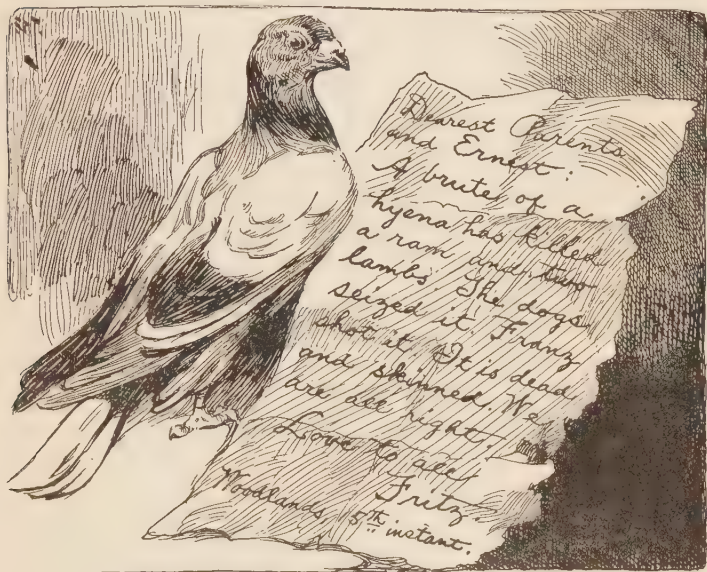 Dearest Parents
and Ernest:
A brute of a
hyena has killed
a ram and two
lambs. The dogs
seized it. Franz
shot it. It is dead
and skinned. We
are all right.
Love to all,
Fritz.
Woodlands, 5th instant.